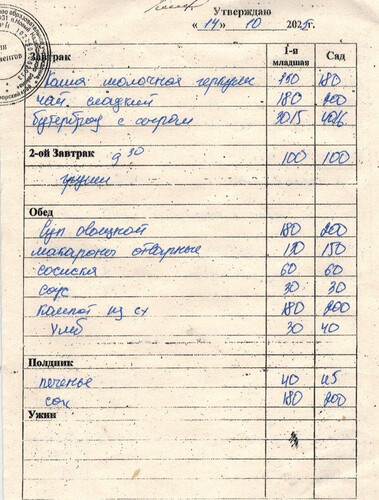 Утверждаю
« 14 » 10 2025г.
1-я младшая Сад
Завтрак
Каша молочная геркулес 150 180
чай сладкий 180 200
бутерброд с сыром 30/5 40/6
2-ой Завтрак 9 30 100 100
груши
Обед
Суп овощной 180 200
макароны отварные 130 150
сосиска 60 60
соус 30 30
Компот из сх 180 200
Хлеб 30 40
Полдник
печенье 40 45
сок 180 200
Ужин